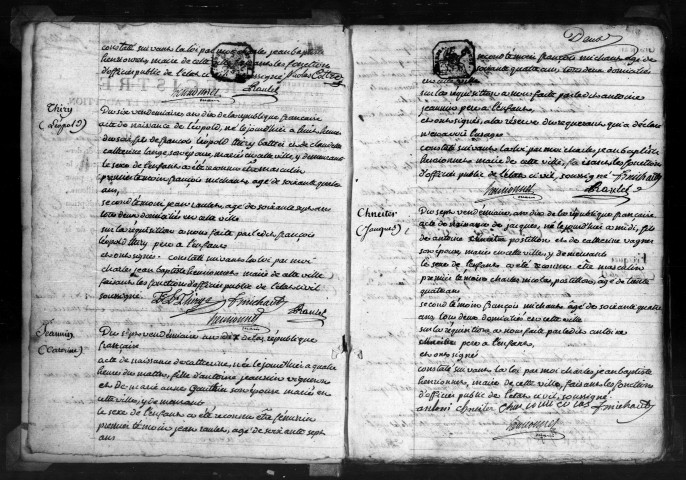 constaté suivant la loi par moi charles jean baptiste
hennionnet, maire de cette ville, faisant les fonctions
d'officier public de l'état civil soussigné Nicolas
hennionnet
Thiry
(Léopold)
Du six vendemiaire an dix de la république française
acte de naissance de Léopold, né le jourd'huier à huit heures
du soir, fils de françois léopold thiry et de claudette
catherine lange son épouse, mariés en cette ville, y demeurant
le sexe de l'enfant a été reconnu etre masculin
premier témoin françois michaux, agé de soixante quatre
ans,
second témoin jean rautes, agé de soixante sept ans
tous deux domiciliés en cette ville
sur la réquisition à nous faite par ledit françois
léopold thiry, pere à l'enfant
et ont signé. constaté suivant la loi par moi
charles jean baptiste hennionnet maire de cette ville
faisant les fonctions d'officier public de l'état civil
soussigné. fmichaux
hennionnet
Jeannin
(Catherine)
Du sept vendémiaire an dix de la république
française
acte de naissance de catherine, née le jourd'hui à quatre
heures du matin, fille d'antoine jeannin vigneron
et de marie anne son épouse mariés en
cette ville, y demeurant
le sexe de l'enfant a été reconnu être féminin
premier témoin jean rautes, agé de soixante sept
ans
Deux
second témoin françois michaux, age de
soixante quatre ans, tous deux domiciliés
en cette ville
sur la réquisition à nous faite par ledit antoine
jeannin pere à l'enfant
et ont signé, à la réserve du requerant qui a déclaré
n'en avoir l'usage
constaté suivant la loi par moi charles jean baptiste
hennionnet maire de cette ville, faisant les fonctions
d'officier public de l'état civil, soussigné fmichaux
hennionnet
Chneiter
(Jacques)
Du sept vendémiaire an dix de la république française
acte de naissance de jacques, né le jourd'hui à midi, fils
de antoine chneiter postillon et de catherine vagner
son épouse, mariés en cette ville, y demeurant
le sexe de l'enfant a été reconnu etre masculin
premier témoin charles nicolas, postillon, agé de trente
quatre ans
second témoin françois michaux, agé de soixante quatre
ans, tous deux domiciliés en cette ville
sur la réquisition à nous faite par ledit antoine
chneiter pere à l'enfant
et ont signé
constaté suivant la loi par moi charles jean baptiste
hennionnet, maire de cette ville, faisant les fonctions
d'officier public de l'état civil, soussigné
antoni chneiter fmichaux
hennionnet